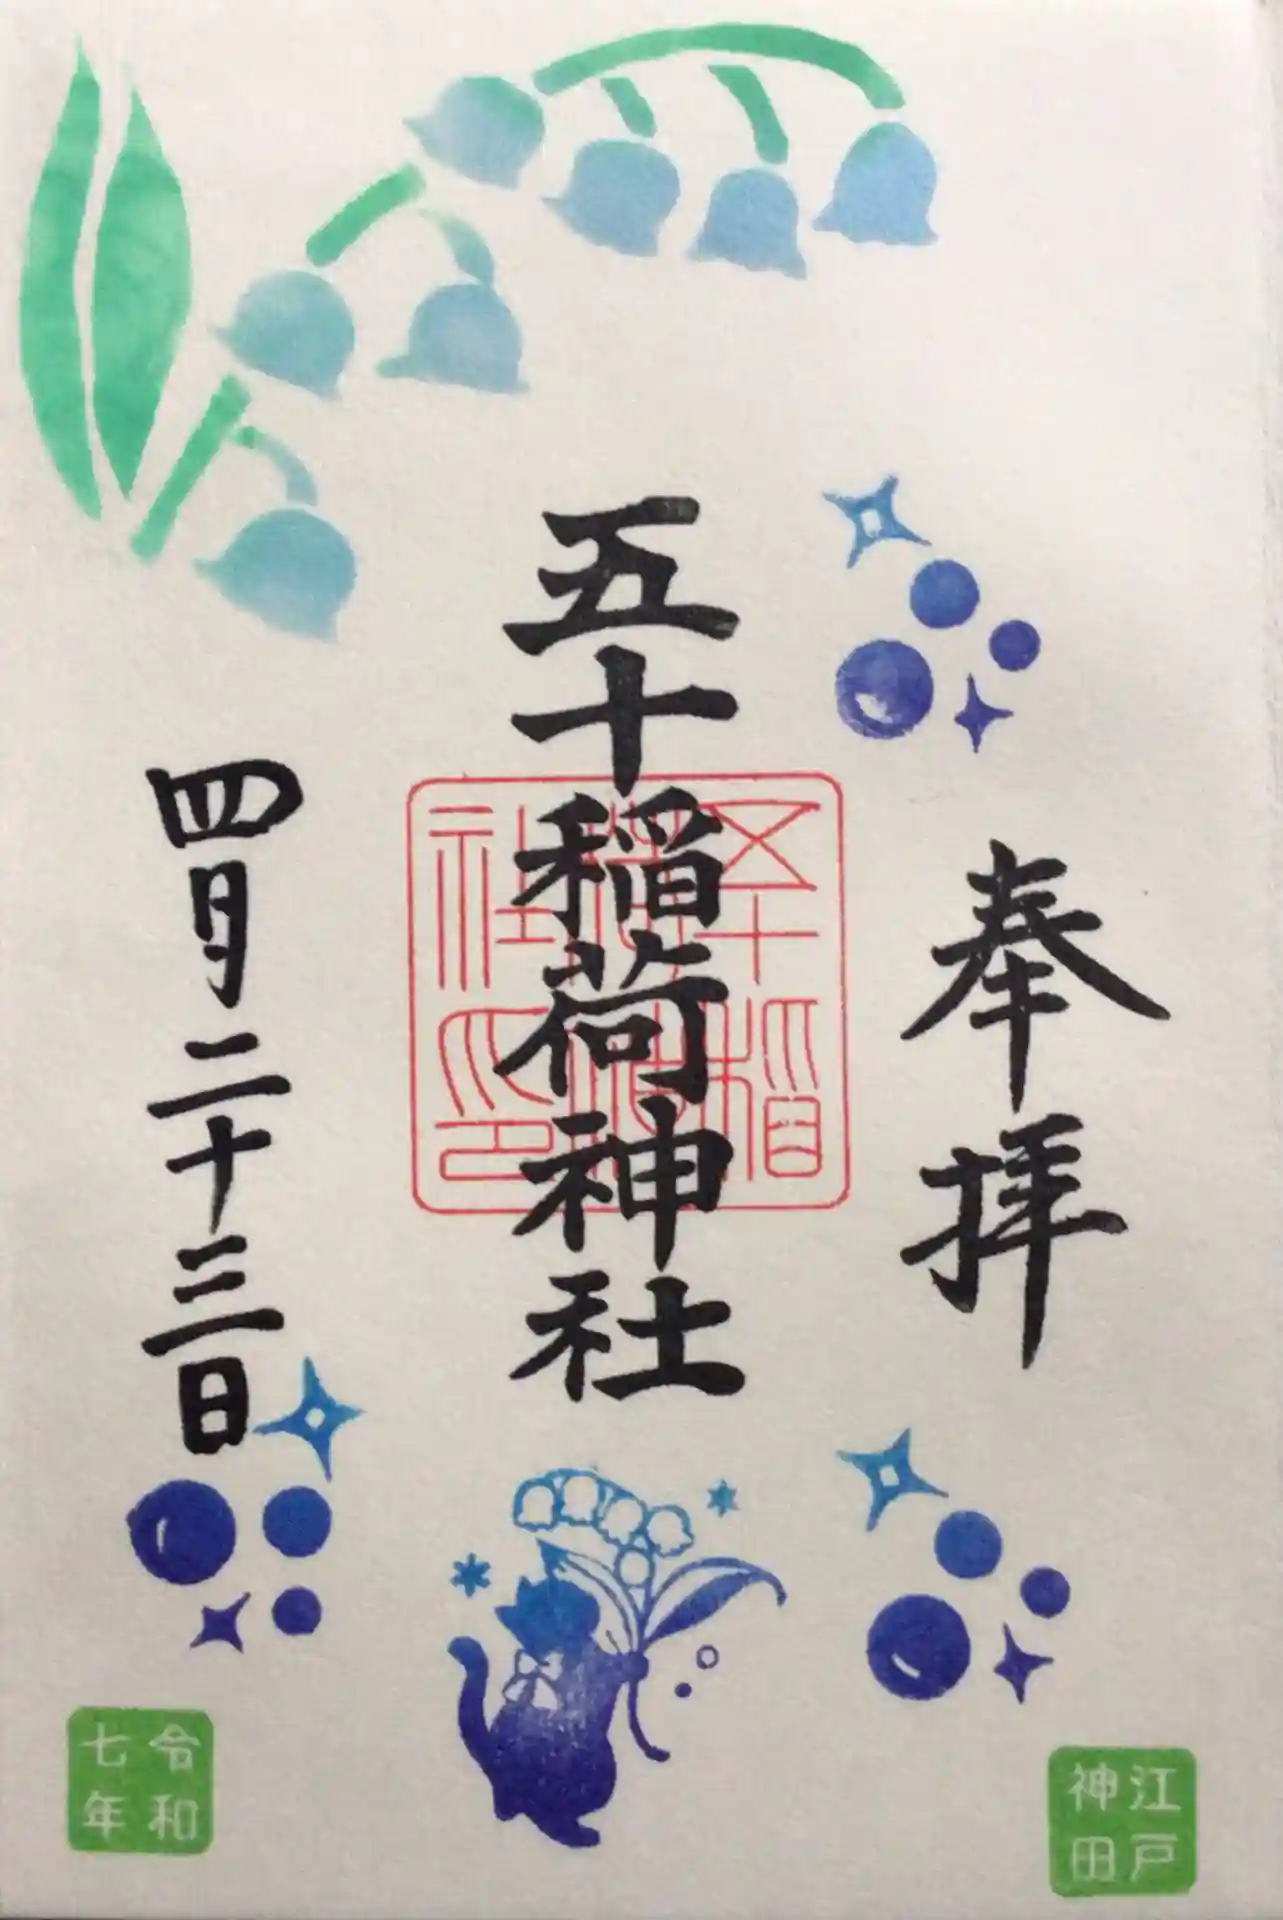 奉拝
五十稲荷神社
五十稲荷神社印
四月二十三日
江戸
神田
令和
七年